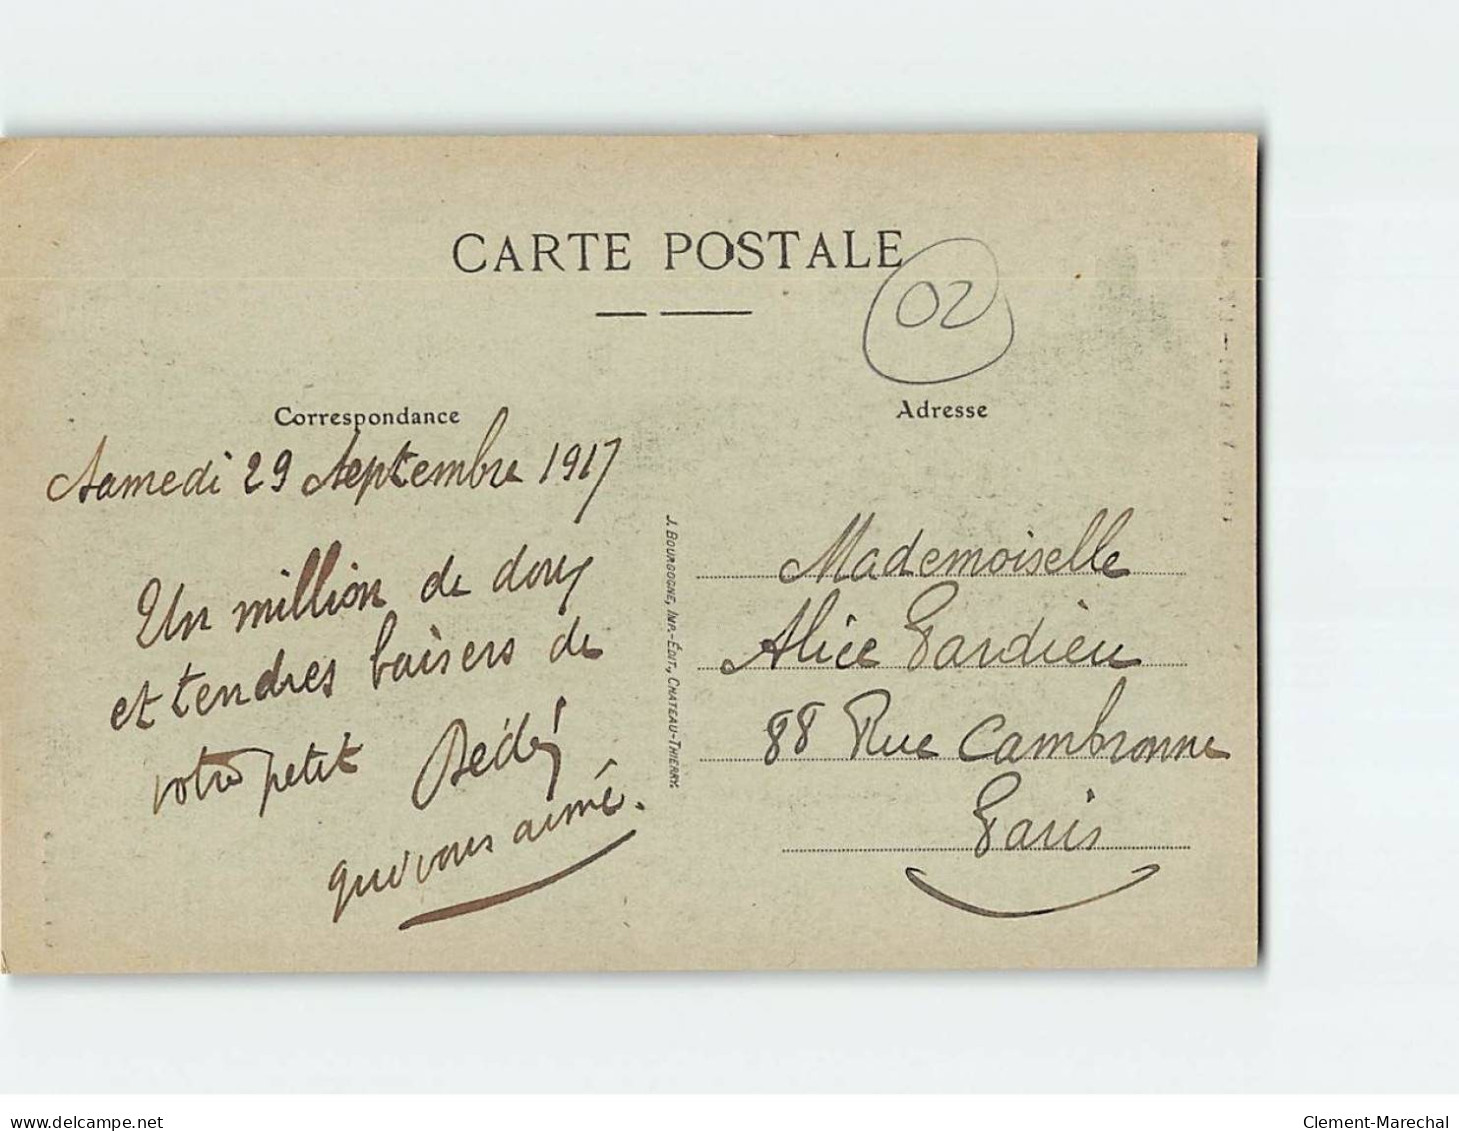 CARTE POSTALE
02
Correspondance
Adresse
Samedi 29 Septembre 1917
Un million de doux
et tendres baisers de
votre petit Dédé
qui vous aime.
J. BOURGOGNE, IMP.-ÉDIT., CHATEAU-THIERRY.
Mademoiselle
Alice Tardieu
88 Rue Cambronne
Paris
delcampe.net
Clement-Marechal